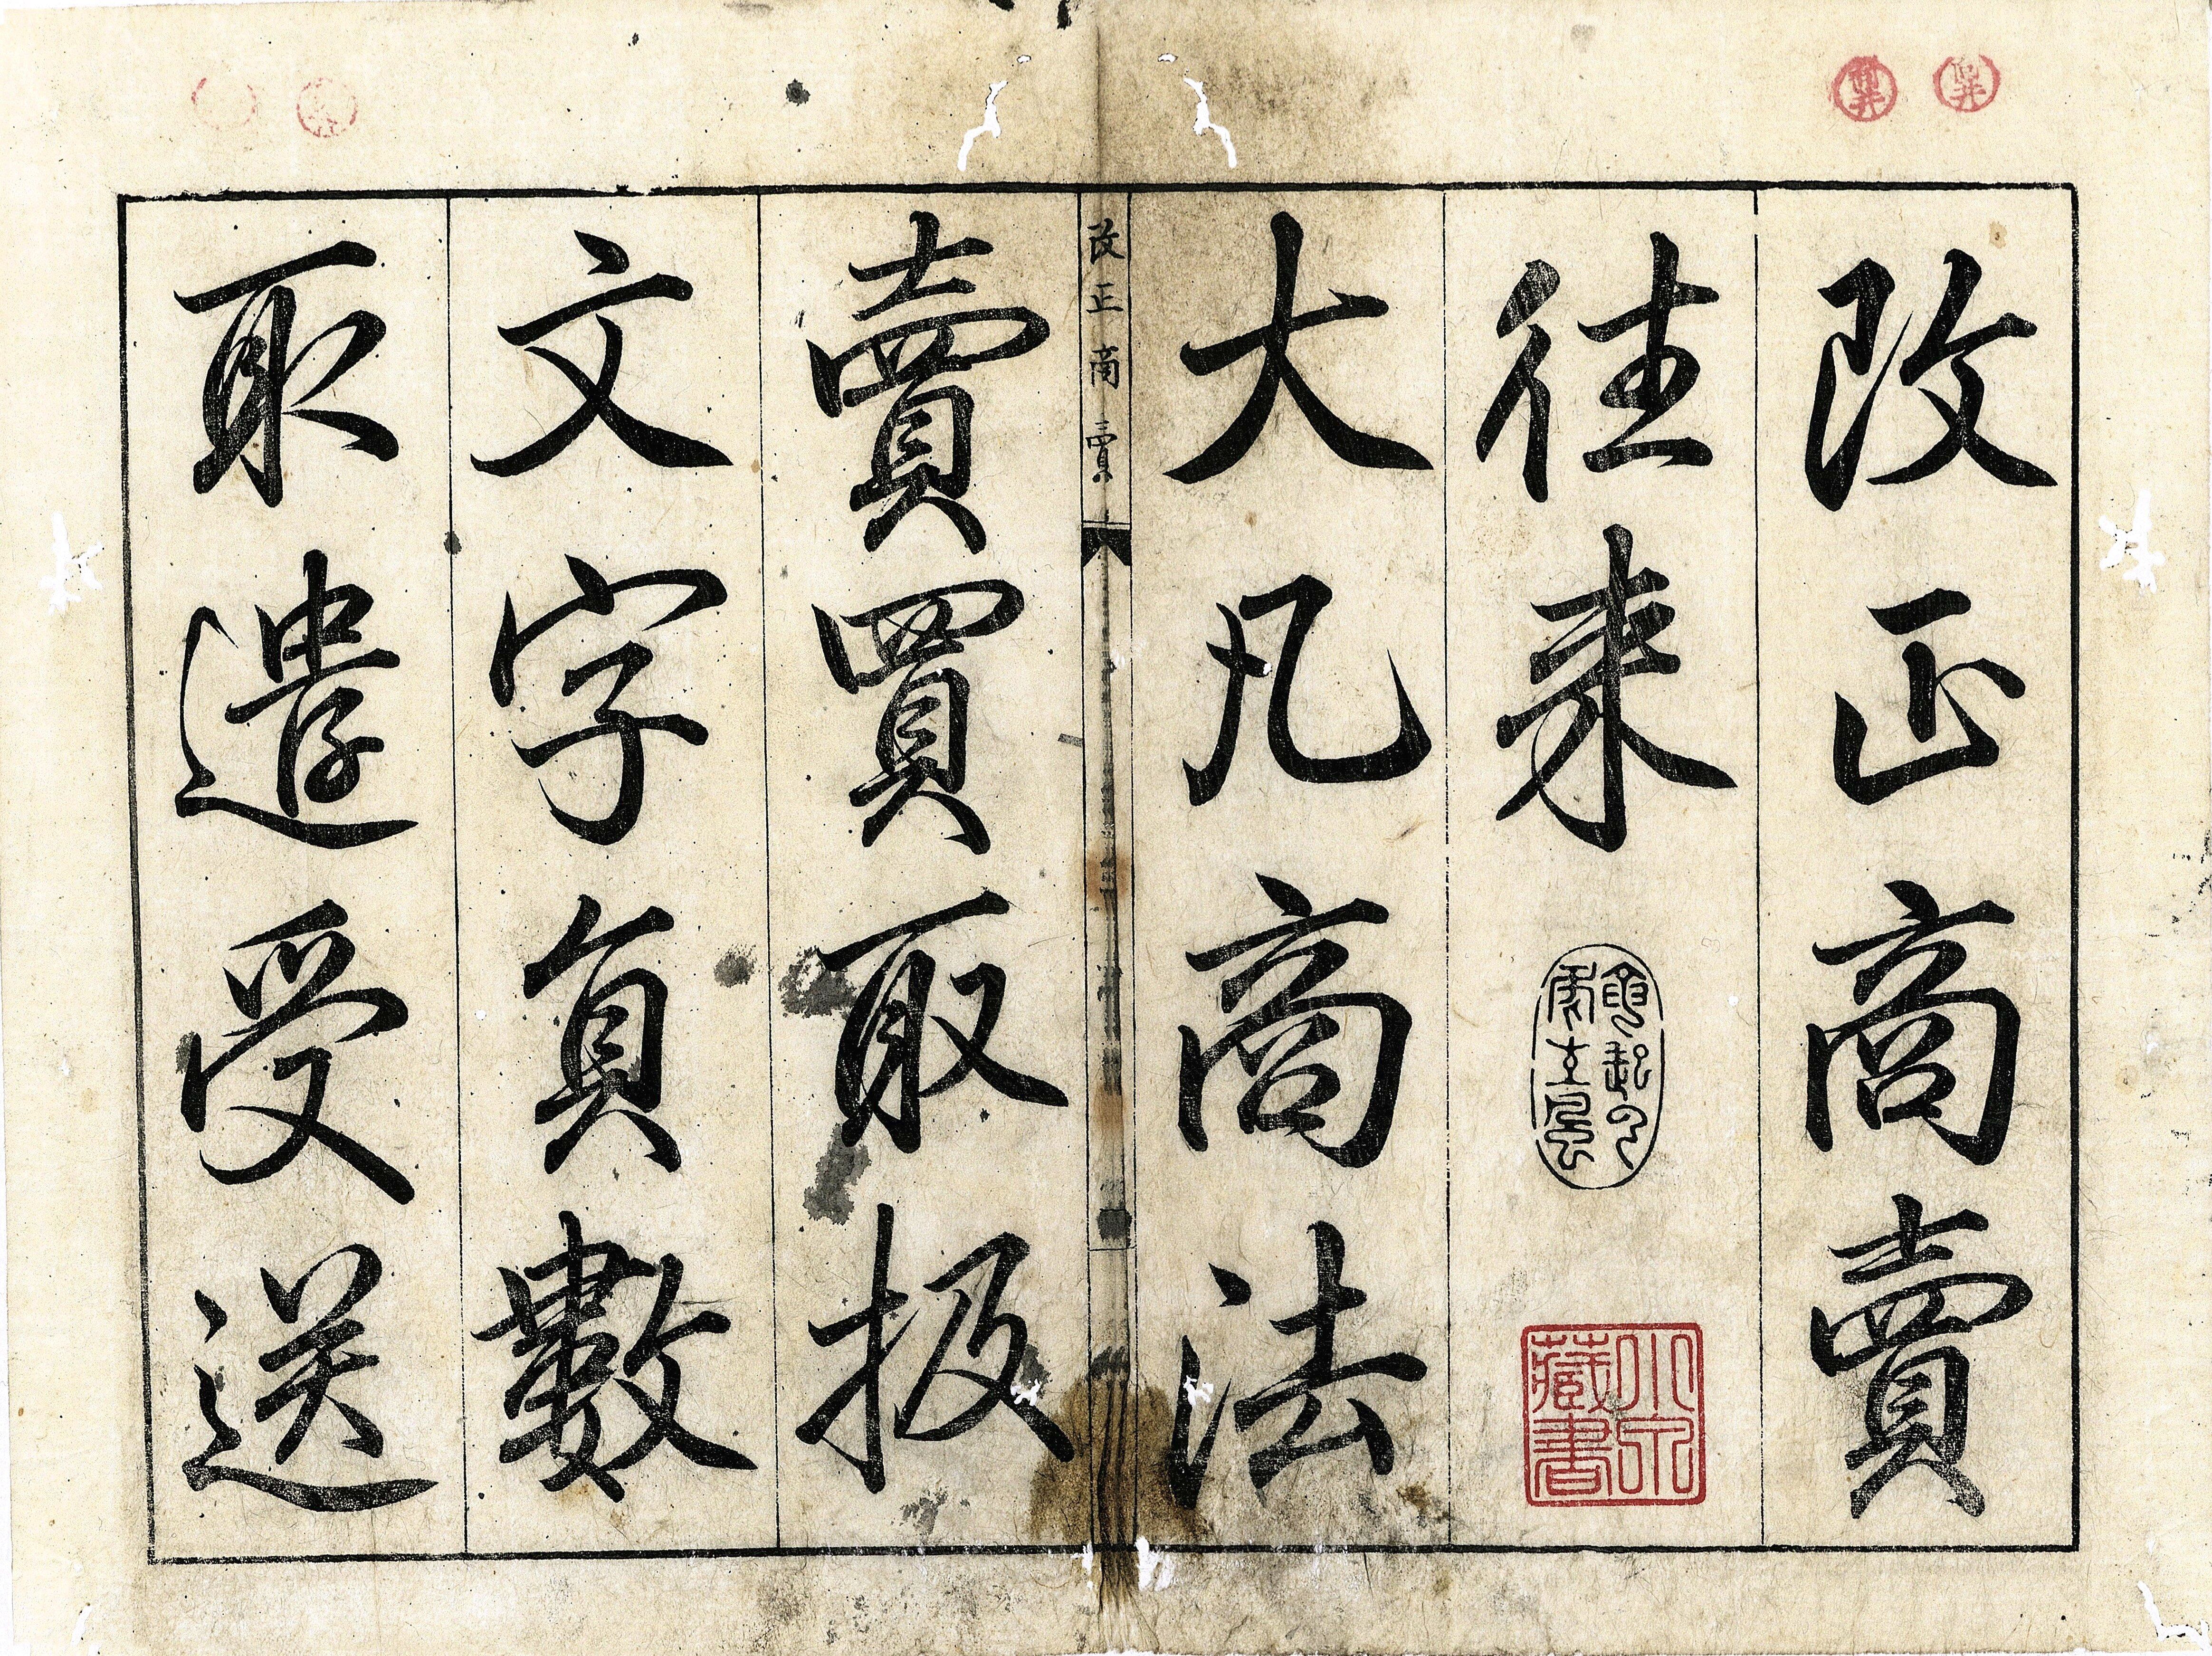 改正商賣
徃来
小泉
藏書
大凡商法
改正商賣
賣買取扱
文字員數
取遣受送